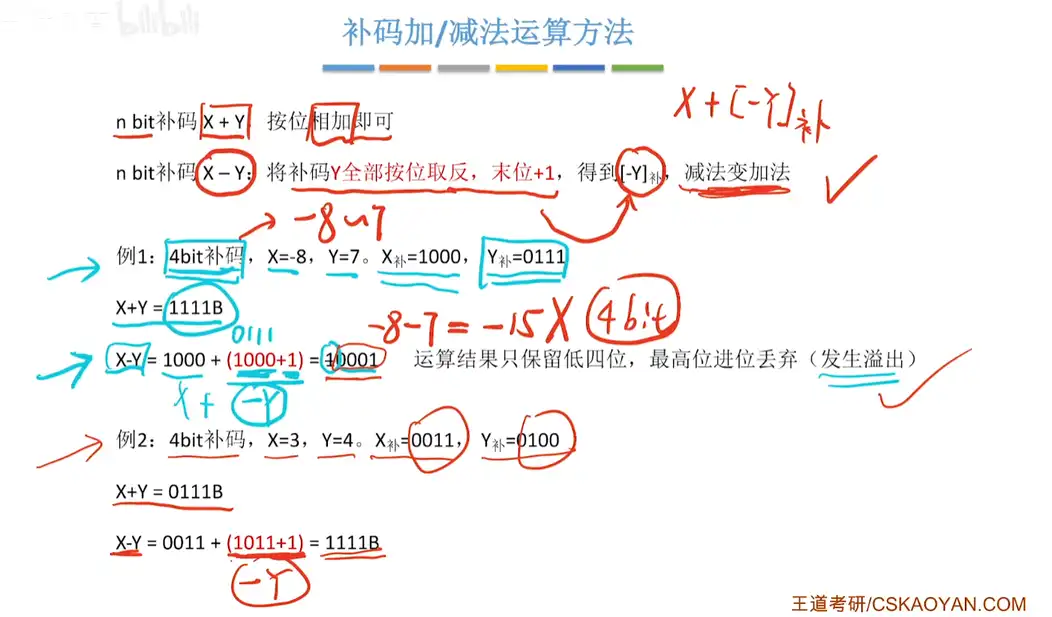 bilibili
补码加/减法运算方法
X+[-Y]补
n bit补码 X + Y:按位相加即可
n bit补码 X – Y:将补码Y全部按位取反,末位+1,得到[-Y]补,减法变加法
-8~7
例1:4bit补码,X=-8,Y=7。X补=1000,Y补=0111
X+Y = 1111B
-8-7=-15 X 4bit
0111
X-Y = 1000 + (1000+1) = 10001 运算结果只保留低四位,最高位进位丢弃(发生溢出)
X + -Y
例2:4bit补码,X=3,Y=4。X补=0011,Y补=0100
X+Y = 0111B
X-Y = 0011 + (1011+1) = 1111B
-Y
王道考研/CSKAOYAN.COM